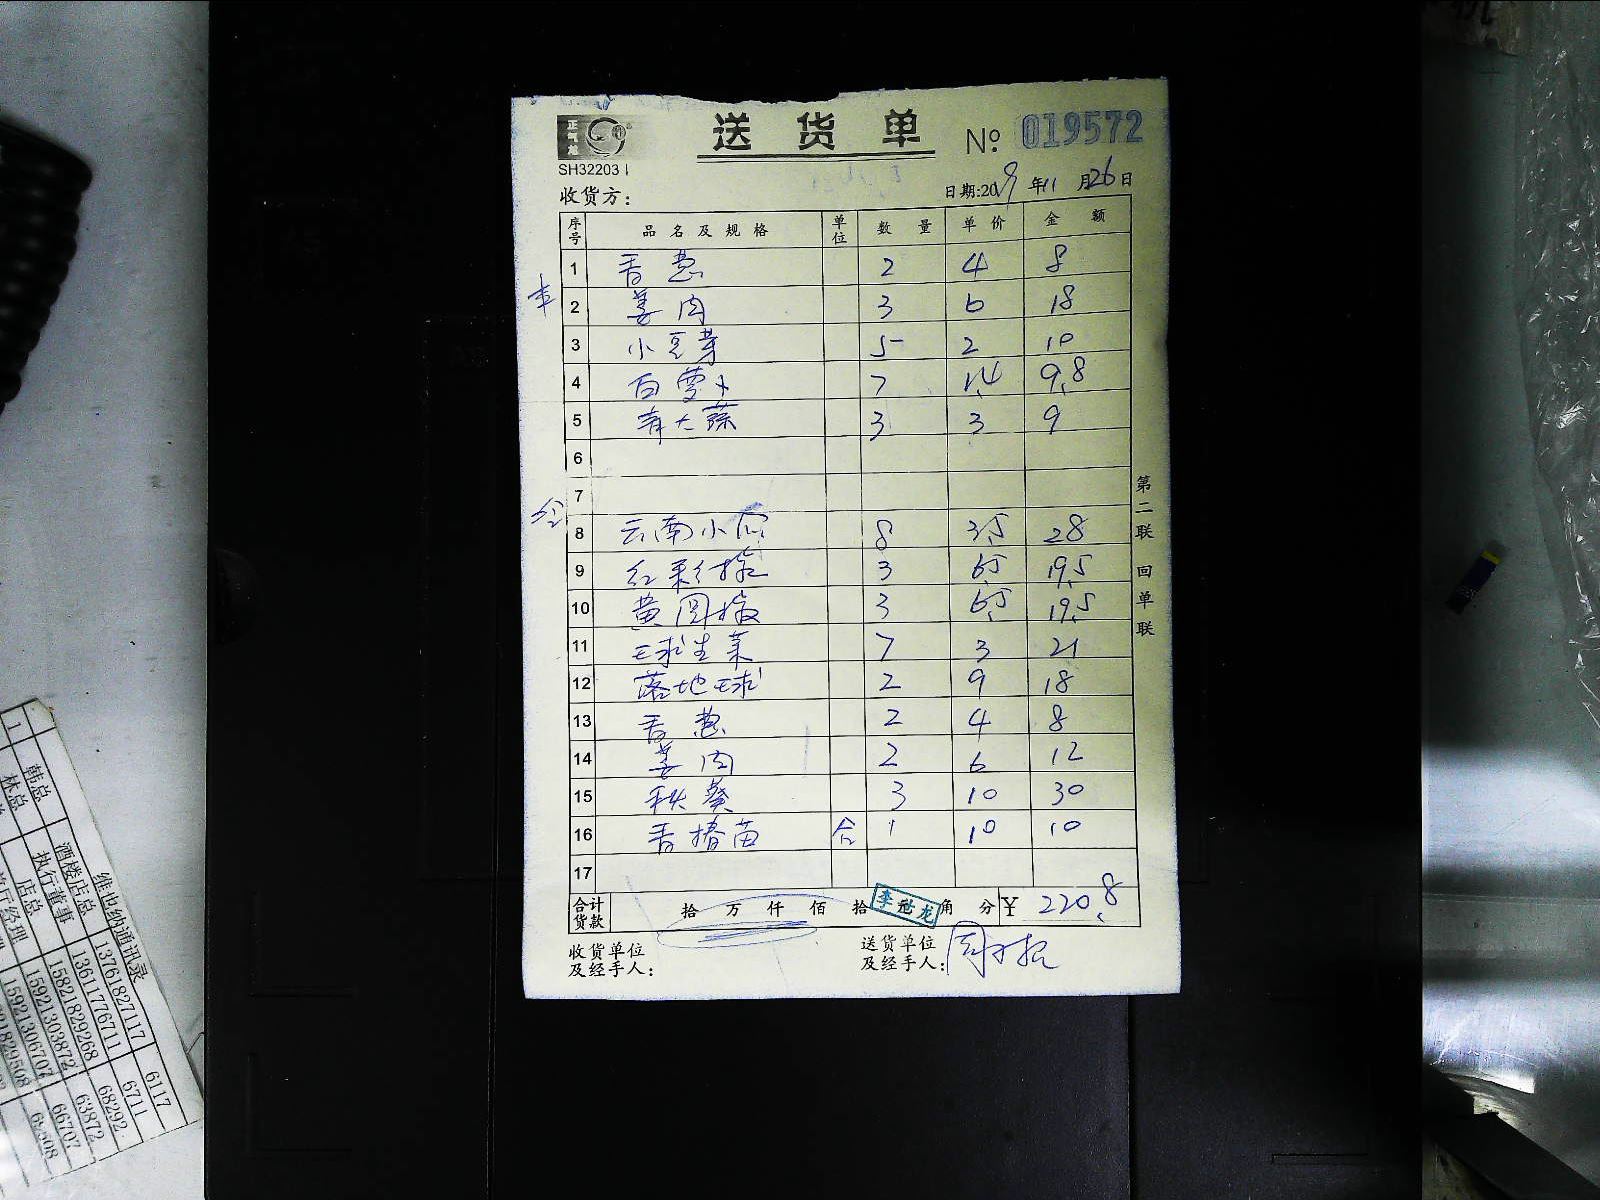 正气龙
送货单 № 019572
SH322031
收货方： 日期:2019年11月26日
序号 品名及规格 单位 数量 单价 金额
1 香葱 2 4 8
2 姜肉 3 6 18
3 小豆芽 5 2 10
4 白萝卜 7 1.4 9.8
5 青大蒜 3 3 9
6
7
8 云南小瓜 8 3.5 28
9 红彩椒 3 6.5 19.5
10 黄圆椒 3 6.5 19.5
11 球生菜 7 3 21
12 落地球 2 9 18
13 香葱 2 4 8
14 姜肉 2 6 12
15 秋葵 3 10 30
16 香椿苗 合 1 10 10
17
合计货款 拾 万 仟 佰 拾 角 分 ¥ 220.8
李 龙
收货单位及经手人：
送货单位及经手人：
第二联 回单联
1 韩总 维也纳通讯录
林总 酒楼店总 13761827117 6117
执行董事 13617776711 6711
店总 15821829268 68292
15921303872 63872